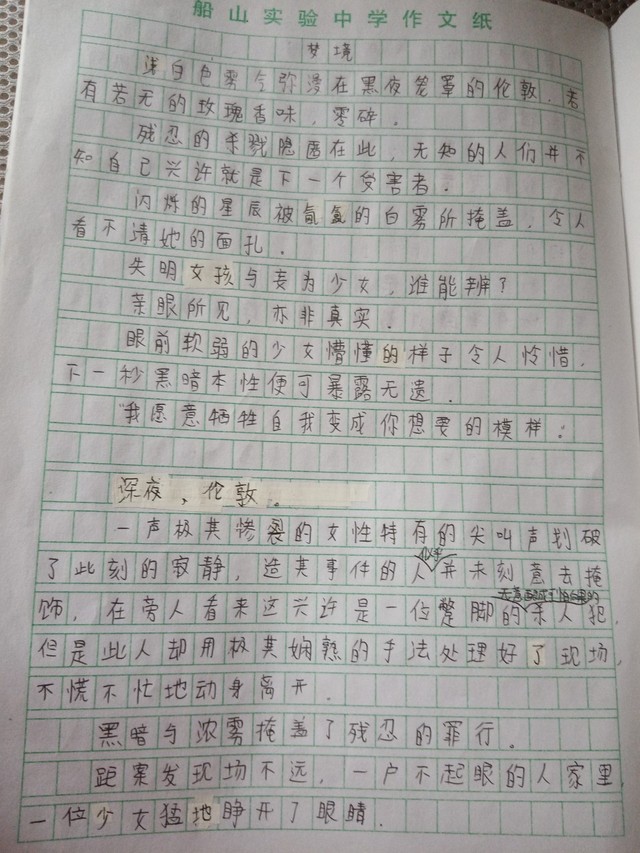 船山实验中学作文纸
梦境
浅白色雾气弥漫在黑夜笼罩的伦敦，若
有若无的玫瑰香味，零碎．
残忍的杀戮隐匿在此，无知的人们并不
知自己兴许就是下一个受害者．
闪烁的星辰被氤氲的白雾所掩盖，令人
看不清她的面孔．
失明女孩与妄为少女，谁能辨？
亲眼所见，亦非真实．
眼前软弱的少女懵懂的样子令人怜惜，
下一秒黑暗本性便可暴露无遗．
“我愿意牺牲自我变成你想要的模样．”
深夜，伦敦。
一声极其惨裂的女性特有的尖叫声划破
了此刻的寂静，造其事件的人似乎并未刻意去掩
饰，在旁人看来这兴许是一位蹩脚的杀人犯，
但是此人却用极其娴熟的手法处理好了现场，
不慌不忙地动身离开．
黑暗与浓雾掩盖了残忍的罪行．
距案发现场不远，一户不起眼的人家里
一位少女猛地睁开了眼睛．